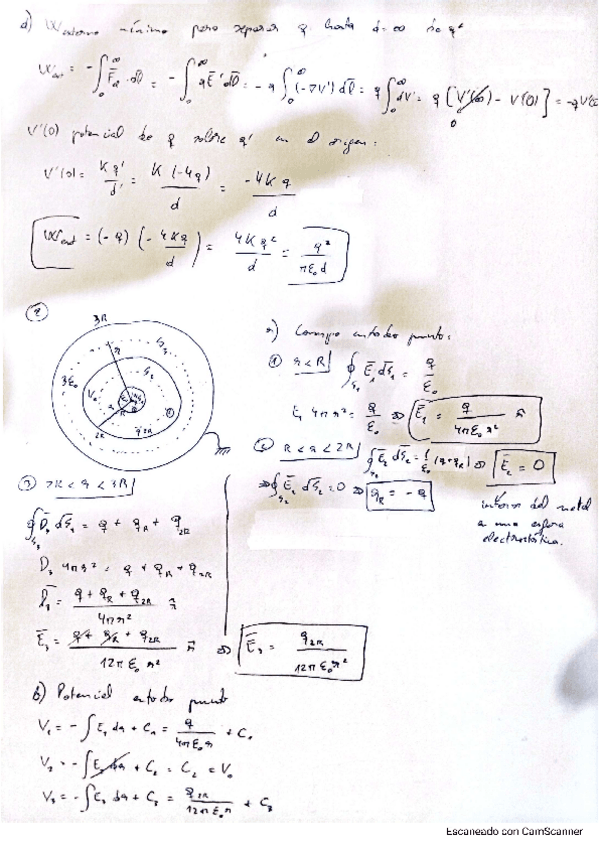 d) W externo mínimo para separar q hasta d=∞ de q'
W_ext = -∫₀^∞ F̄_e·dl̄ = -∫₀^∞ qĒ'dl̄ = -q∫₀^∞ (-∇V')dl̄ = q∫₀^∞ dV' = q[V'(∞) - V'(0)] = -qV'(0)
0
V'(0) potencial de q' sobre q en el origen:
V'(0) = Kq'/d' = K(-4q)/d = -4Kq/d
W_ext = (-q)(-4Kq/d) = 4Kq²/d = q²/πε₀d
②
3R
3ε₀
V₀
2R
q_2R
a) Campo en todo punto:
① r<R| ∮_S₁ Ē₁dS̄₁ = q/ε₀
E₁ 4πr² = q/ε₀ ⇒ Ē₁ = q/4πε₀r² r̂
② R<r<2R| ∮_S₂ Ē₂dS̄₂ = 1/ε₀ (q+q_R) ⇒ Ē₂ = 0
⇒ ∮_S₂ Ē₂ dS̄₂ = 0 ⇒ q_R = -q
interior del metal
a una esfera
electrostática.
③ 2R<r<3R|
∮_S₃ D̄₃dS̄₃ = q + q_R + q_2R
D₃ 4πr² = q + q_R + q_2R
D̄₃ = q + q_R + q_2R/4πr² r̂
Ē₃ = q + q_R + q_2R/12πε₀r² r̂ ⇒ Ē₃ = q_2R/12πε₀r²
b) Potencial en todo punto
V₁ = -∫E₁dr + C₁ = q/4πε₀r + C₁
V₂ = -∫E₂dr + C₂ = C₂ = V₀
V₃ = -∫E₃dr + C₃ = q_2R/12πε₀r + C₃
Escaneado con CamScanner